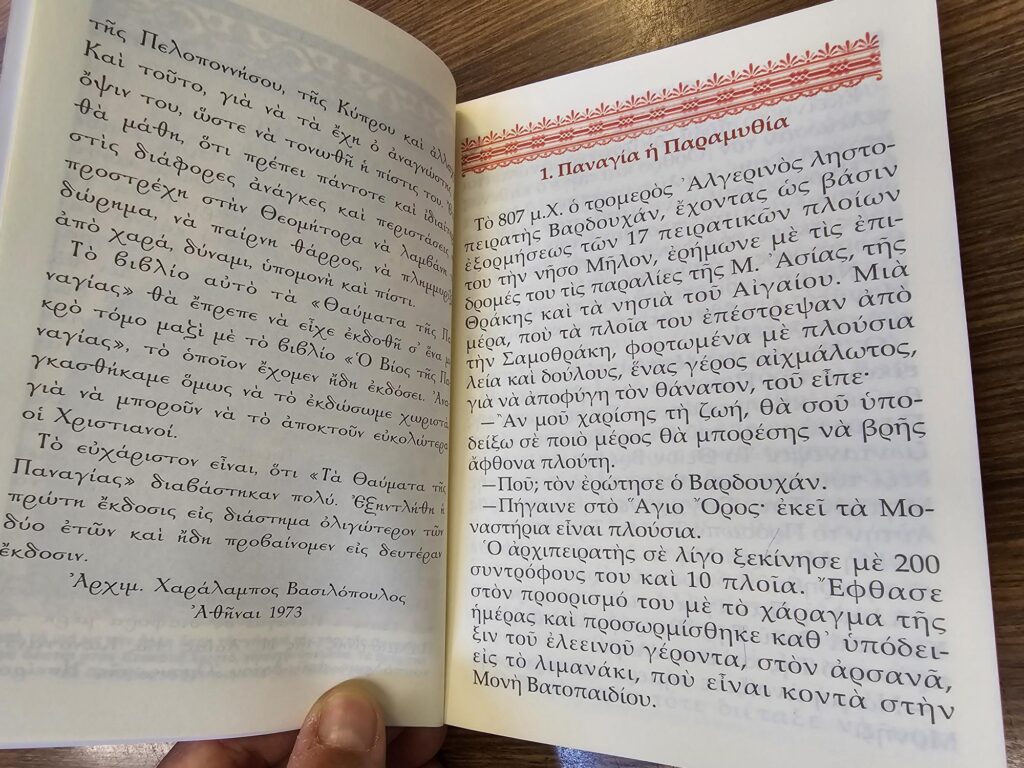 τῆς Πελοποννήσου, τῆς Κύπρου καὶ
Καὶ τοῦτο, γιὰ νὰ τὰ ἔχη ὁ ἀναγνώστης
ὄψιν του, ὥστε νὰ τονωθῆ ἡ πίστις του.
θὰ μάθη, ὅτι πρέπει πάντοτε καὶ
στὶς διάφορες ἀνάγκες καὶ περιστάσεις
προστρέχη στὴν Θεομήτορα νὰ λαμβάνη
δώρημα, νὰ παίρνη θάρρος, νὰ
ἀπὸ χαρά, δύναμι, ὑπομονὴ καὶ πίστι.
Τὸ βιβλίο αὐτὸ τὰ «Θαύματα τῆς Πα-
ναγίας» θὰ ἔπρεπε νὰ εἶχε ἐκδοθῆ σ’ ἕνα μι-
κρὸ τόμο μαζὶ μὲ τὸ βιβλίο «Ὁ Βίος τῆς Πα-
ναγίας», τὸ ὁποῖον ἔχομεν ἤδη ἐκδόσει. Ἀναγ-
κασθήκαμε ὅμως νὰ τὸ ἐκδώσωμε χωριστὰ
γιὰ νὰ μποροῦν νὰ τὸ ἀποκτοῦν εὐκολώτερα
οἱ Χριστιανοί.
Τὸ εὐχάριστον εἶναι, ὅτι «Τὰ Θαύματα τῆς
Παναγίας» διαβάστηκαν πολύ. Ἐξηντλήθη ἡ
πρώτη ἔκδοσις εἰς διάστημα ὀλιγώτερον τῶν
δύο ἐτῶν καὶ ἤδη προβαίνομεν εἰς δευτέραν
ἔκδοσιν.
Ἀρχιμ. Χαράλαμπος Βασιλόπουλος
Ἀθῆναι 1973
1. Παναγία ἡ Παραμυθία
Τὸ 807 μ.Χ. ὁ τρομερὸς Ἀλγερινὸς ληστο-
πειρατὴς Βαρδουχάν, ἔχοντας ὡς βάσιν
ἐξορμήσεως τῶν 17 πειρατικῶν πλοίων
του τὴν νῆσο Μῆλον, ἐρήμωνε μὲ τὶς ἐπι-
δρομές του τὶς παραλίες τῆς Μ. Ἀσίας, τῆς
Θράκης καὶ τὰ νησιὰ τοῦ Αἰγαίου. Μιὰ
μέρα, ποὺ τὰ πλοῖα του ἐπέστρεψαν ἀπὸ
τὴν Σαμοθράκη, φορτωμένα μὲ πλούσια
λεία καὶ δούλους, ἕνας γέρος αἰχμάλωτος,
γιὰ νὰ ἀποφύγη τὸν θάνατον, τοῦ εἶπε·
—Ἂν μοῦ χαρίσης τὴ ζωή, θὰ σοῦ ὑπο-
δείξω σὲ ποιὸ μέρος θὰ μπορέσης νὰ βρῆς
ἄφθονα πλούτη.
—Ποῦ; τὸν ἐρώτησε ὁ Βαρδουχάν.
—Πήγαινε στὸ Ἅγιο Ὄρος· ἐκεῖ τὰ Μο-
ναστήρια εἶναι πλούσια.
Ὁ ἀρχιπειρατὴς σὲ λίγο ξεκίνησε μὲ 200
συντρόφους του καὶ 10 πλοῖα. Ἔφθασε
στὸν προορισμό του μὲ τὸ χάραγμα τῆς
ἡμέρας καὶ προσωρμίσθηκε καθ’ ὑπόδει-
ξιν τοῦ ἐλεεινοῦ γέροντα, στὸν ἀρσανᾶ,
εἰς τὸ λιμανάκι, ποὺ εἶναι κοντὰ στὴν
Μονὴ Βατοπαιδίου.